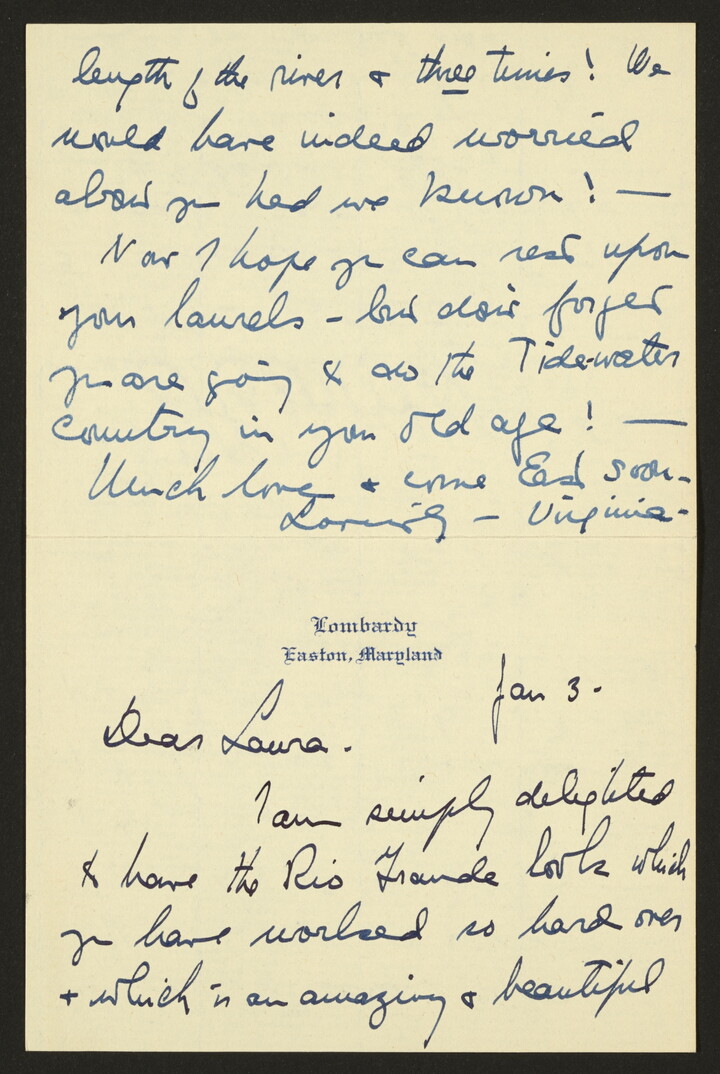 length of the river & three times! We
would have indeed worried
about you had we known! —
Now I hope you can rest upon
your laurels - but don't forget
you are going to do the Tidewater
country in your old age! —
Much love & come East soon -
Lovingly - Virginia -
Lombardy
Easton, Maryland
Jan 3 -
Dear Laura -
I am simply delighted
to have the Rio Grande book which
you have worked so hard over
& which is an amazing & beautiful